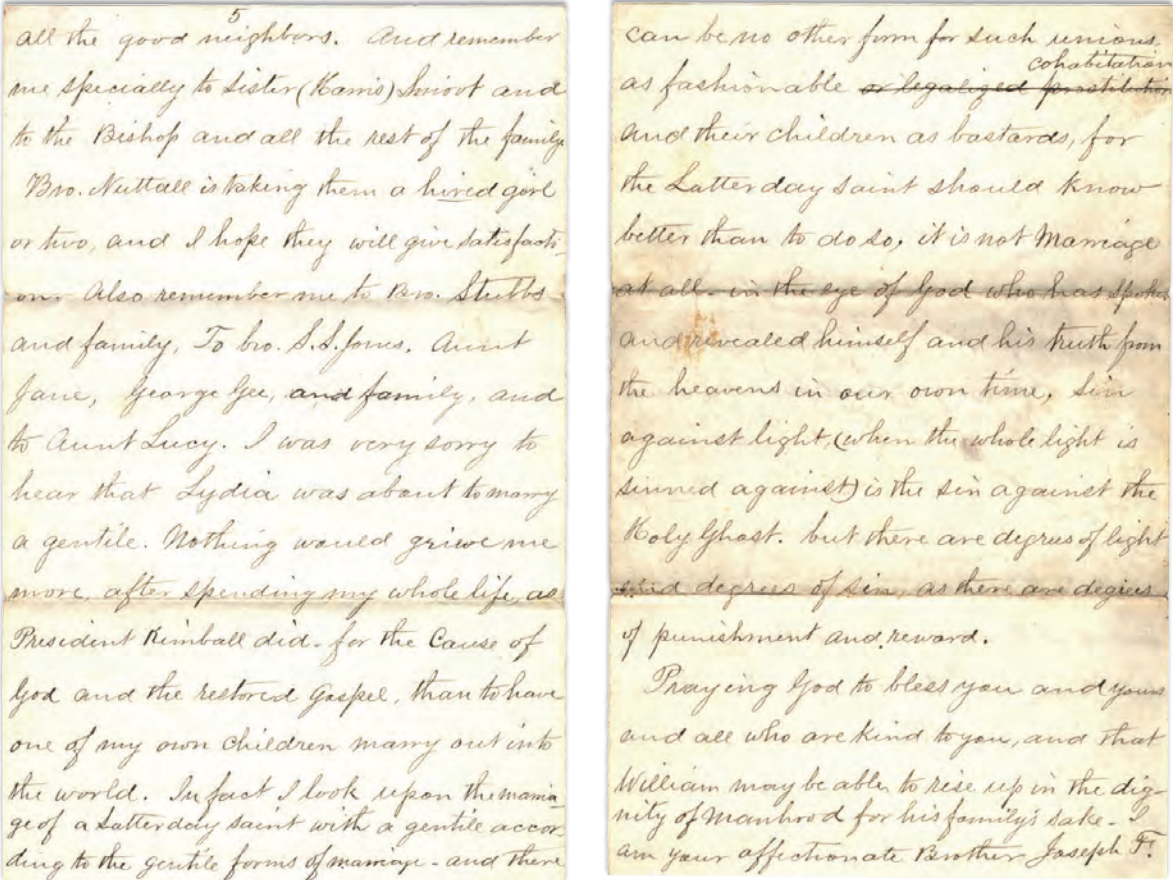 5
all the good neighbors. And remember
me specially to sister (Harris) Smoot and
to the Bishop and all the rest of the family
Bro. Nuttall is taking them a hired girl
or two, and I hope they will give satisfacti-
on. Also remember me to Bro. Stubbs
and family, To bro. S.S. Jones. Aunt
Jane, George Gee, and family, and
to Aunt Lucy. I was very sorry to
hear that Lydia was about to marry
a gentile. Nothing would grieve me
more, after spending my whole life, as
President Kimball did - for the Cause of
God and the restored Gospel, than to have
one of my own children marry out into
the world. In fact I look upon the marria-
ge of a Latterday saint with a gentile accor-
ding to the gentile forms of marriage - and there
can be no other form for such unions,
cohabitation
as fashionable or legalized prostitution
and their children as bastards, for
the Latter day saint should know
better than to do so, it is not Marriage
at all - in the eye of God who has spoken
and revealed himself and his truth from
the heavens in our own time. Sin
against light, (when the whole light is
sinned against) is the sin against the
Holy Ghost. but there are degrees of light
and degrees of sin, as there are degrees
of punishment and reward.
Praying God to bless you and yours
and all who are kind to you, and that
William may be able to rise up in the dig-
nity of Manhood for his family's sake - I
am your affectionate Brother Joseph F.